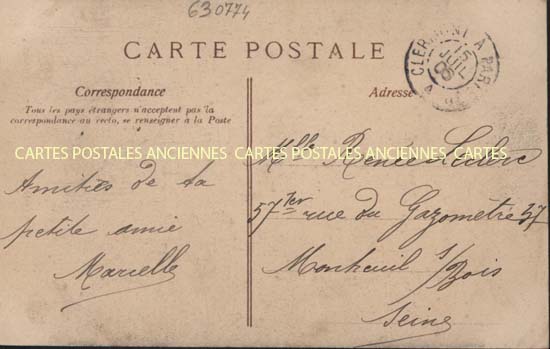 630774
CARTE POSTALE
CLERMONT A PARIS
15
JUIL
Correspondance
Tous les pays étrangers n'acceptent pas la
correspondance au recto, se renseigner à la Poste
Adresse
CARTES POSTALES ANCIENNES CARTES POSTALES ANCIENNES CARTES
Mlle Renée Leclerc
57 Ter rue du Gazomètre 57
Montreuil s/Bois
Seine
Amitiés de ta
petite amie
Marcelle